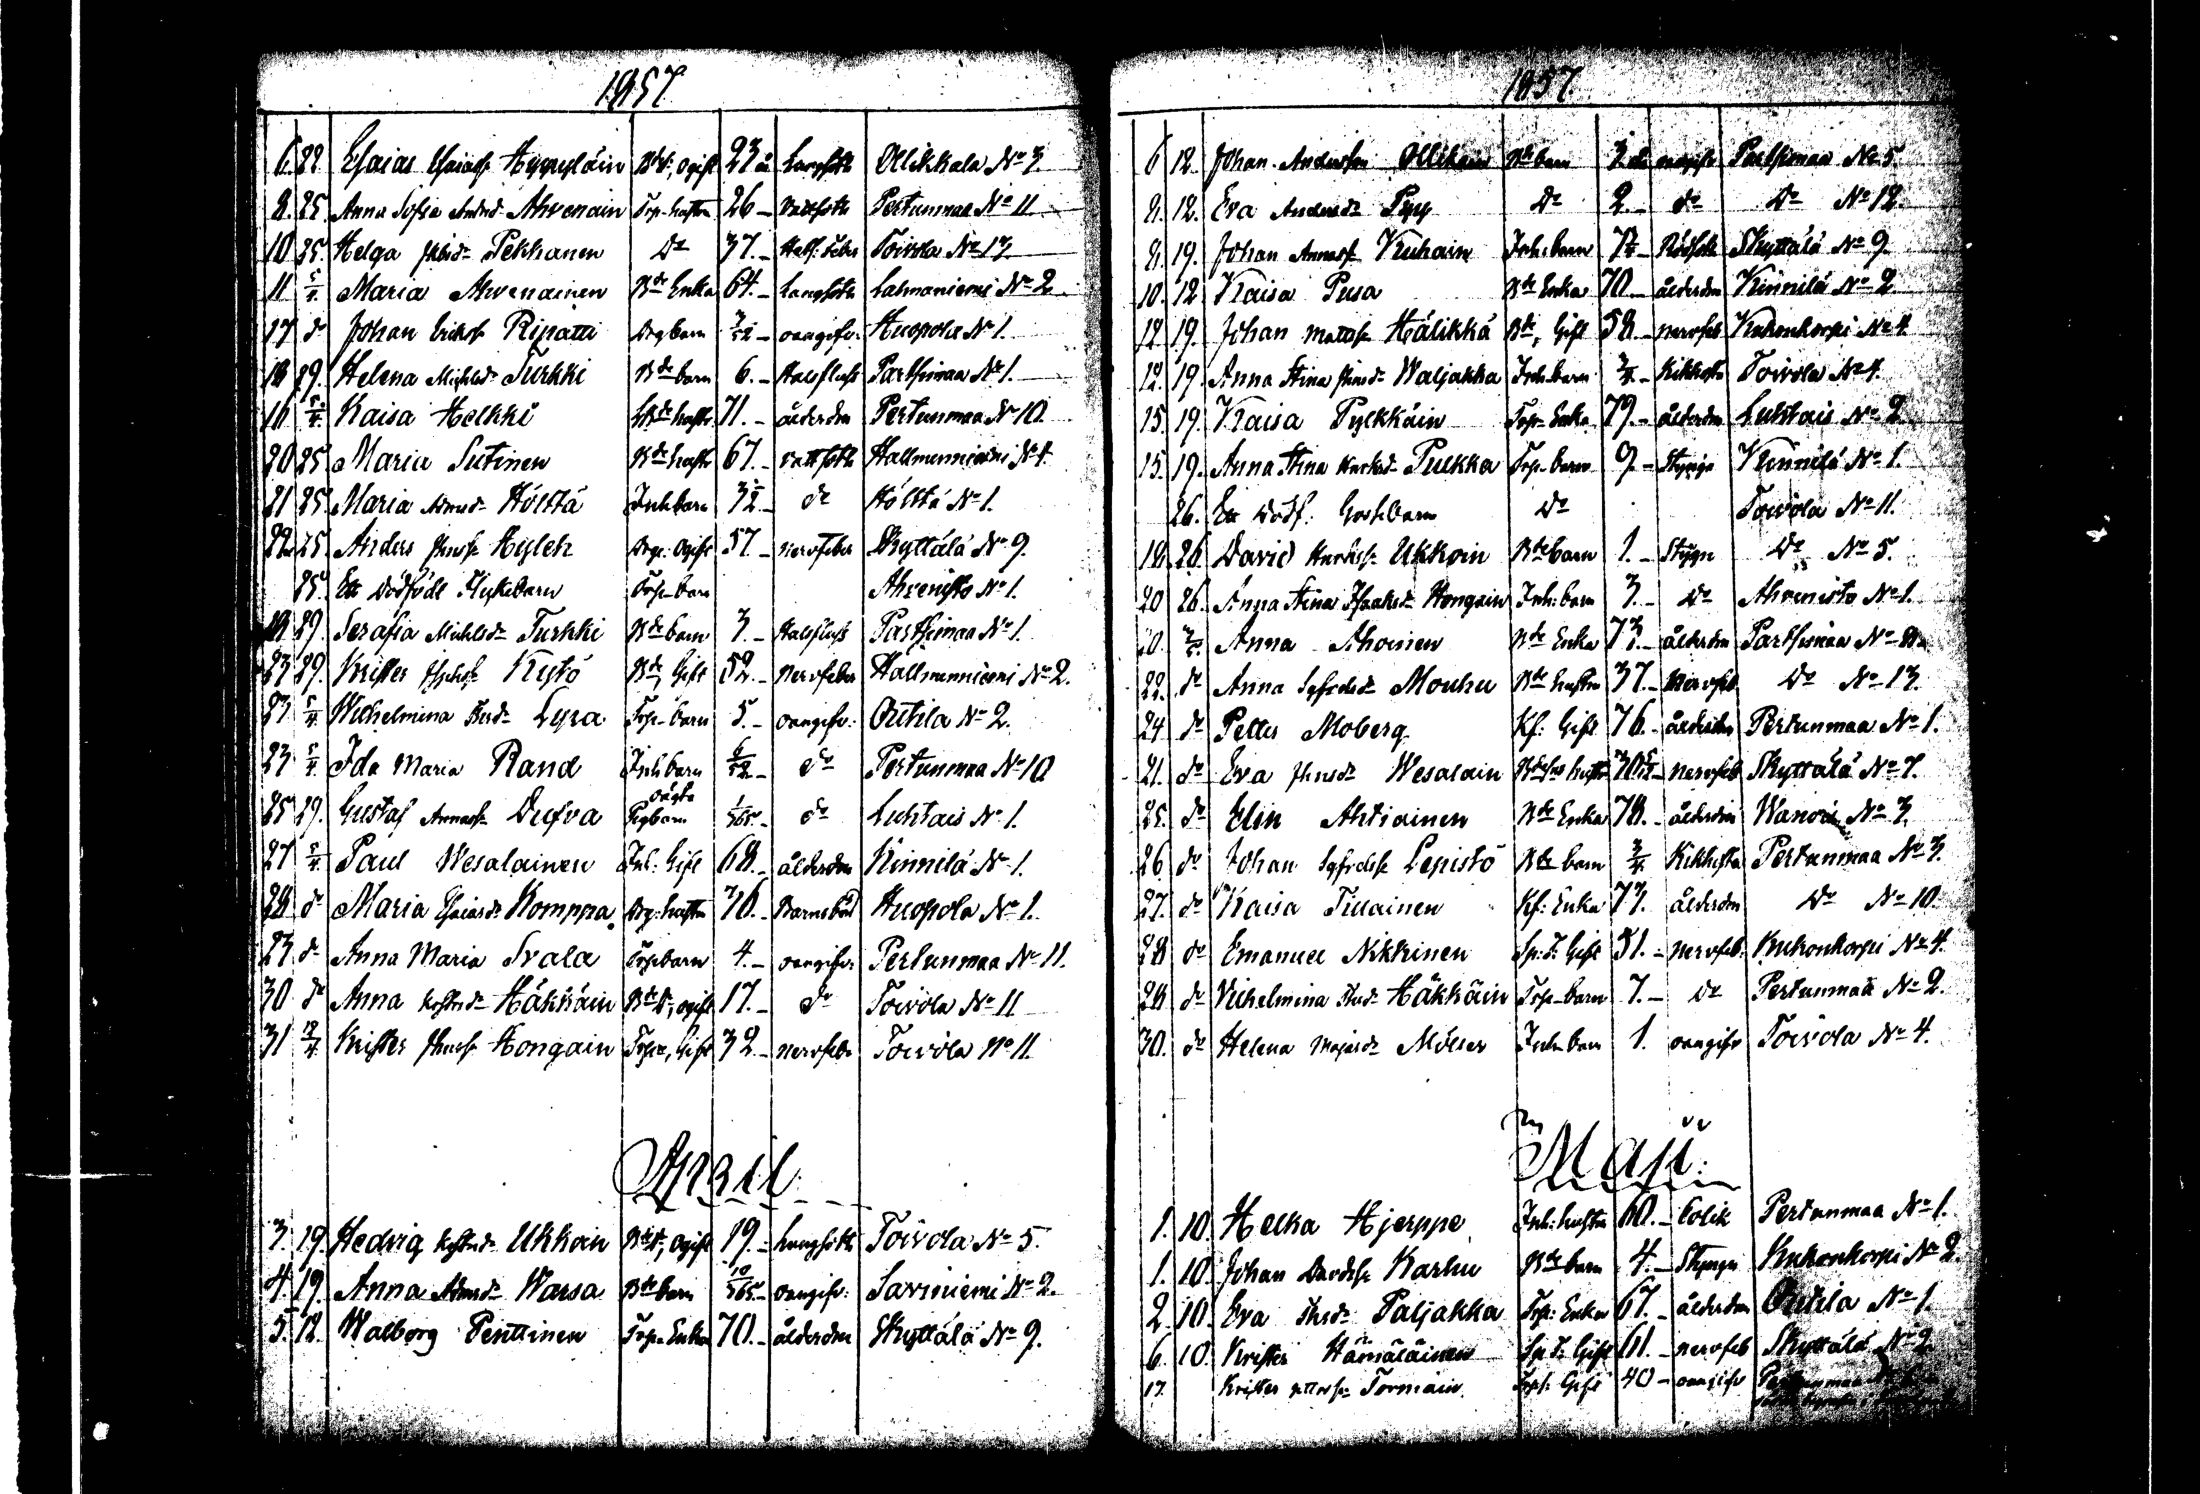 1857.
6. 22. Esaias Esaiass. Hyyryläin Bds., ogift 23 å Lungsoth Ollikkala No 3.
8. 25. Anna Sofia Andrsd. Ahvenain Torp. hustru 26 – Vattsoth Pertunmaa No 11
10 25. Helga Pekkanen Do 37. – Toivola No 13
11 5/4 Maria Ahvenainen Bde Enka 64. – Lungsoth Lahnaniemi No 2
17 do Johan Eriks. Ripatti barn 3/52 – oangifv. Kuopola No 1.
18 29. Helena Michlsd. Turkki Bde barn 6. – Halsfluss Partsimaa No 1.
16 5/4 Kaisa Helkki hustr. 71. – ålderdm Pertunmaa No 10.
20 25 Maria Sutinen Bde hustr 67. – vattsoth Hallmenniemi No 4.
21 25. Maria Admsd. Hölttä Inh. barn do Hölttä No 1.
22. 25. Anders Hyleh Ogift 57. – nervfeber Skyttälä No 9.
25. Ett dödfödt Flickebarn Torp. barn Ahvenisto No 1.
29. Serafia Michlsd. Turkki Bde barn 3. – Halsfluss Partsimaa No 1.
23 29. Krister Kystö Bde, Gift 52. – Nervfeber Hallmenniemi No 2.
23 5/4 Wilhelmina Lyra Torp. barn 5. – oangifv: Outila No 2.
23 5/4 Ida Maria Rand Inh. barn 6/52 – do Pertunmaa No 10
25 29. Gustaf Dufva oägta Pig barn 1/365 – do Luhtais No 1.
27 5/4 Paul Wesalainen Inh: Gift 68. – ålderdm Kinnilä No 1.
28 do Maria Esaiasd. Komppa hustru – Barnsbörd Kuopola No 1.
23 do Anna Maria Svala Torp barn 4. – oangifv: Pertunmaa No 11.
30 do Anna Häkkäin Bde D., ogift 17. – do Toivola No 11
31 12/4 Krister Hongain Torp., Gift 32. – nervfebr Toivola No 11.
April.
3. 19. Hedvig Ukkoin Bde D., Ogift 19. – Lungsoth Toivola No 5.
4. 19. Anna Admsd. Warsa Bde barn 10/365 – oangifv: Saviniemi No 2.
5. 12. Walborg Penttinen Torp. Enka 70. – ålderdm Skyttälä No 9.
1857.
6 12. Johan Anderssn Ollikain Bde barn 3 do oangifv Partsimaa No 5.
8. 12. Eva Andersd. Pyy Do 2. – do Do No 12.
8. 19. Johan Kuhain Inh. barn Rödsoth Skyttälä No 9.
10. 12 Kaisa Pusa Bde Enka 70. – ålderdm Kinnilä No 2.
12 19. Johan Matts. Hälikkä Bde, Gift 58. – nervfeb Kuhonkorpi No 4.
12. 19. Anna Stina Waljakka Inh. barn 3/4 – Kikhosta Toivola No 4.
15. 19. Kaisa Pylkkäin Torp. Enka 79. – ålderdm Luhtais No 2
15. 19. Anna Stina Pulkka Torp. barn 9 – Kinnilä No 1.
26. Ett dödf. Gossebarn Do Toivola No 11.
18. 26. David Ukkoin Bde barn 1. – Do No 5.
20 26. Anna Stina Isaaksd. Hongain Inh: barn 3. – do Ahvenisto No 1.
20. Anna Ahoinen Bde Enka 73. – ålderdm Partsimaa No
22. do Anna Sgfrdsd. Mouhu Bde hustru 37. – Nervfeb Do No 13.
24 do Petter Moberg Kf: Gift 76. – ålderdm Pertunmaa No 1.
21. do Eva Wesalain hustr. – nervfeb Skyttälä No 7.
25. do Elin Ahtiainen Bde Enka 78. – ålderdm No 3.
26 do Johan Sgfrds. Lepistö Bde barn 3/4 Kikhosta Pertunmaa No 3.
27. do Kaisa Tillainen Kf: Enka 77. ålderdm Do No 10.
28 do Emanuel Nikkinen Gift 51. – nervfeb. Kuhonkorpi No 4.
28 do Wilhelmina Häkkäin Torp. barn 7. – do Pertunmaa No 2.
30. do Helena Möller Inh. barn 1. oangifv Toivola No 4.
Maji.
1. 10. Helka Hjerppe Inh: hustru 60. – Colik Pertunmaa No 1.
1. 10. Johan Davids. Karhu Bde barn 4. – Kuhonkorpi No 2.
2. 10. Eva Paljakka Torp: Enka 67. – ålderdm Outila No 1.
6. 10. Krister Hämäläinen Gift 61. – nervfeb Skyttälä No 2
17. Krister Tormäin Torp. Gift 40 – oangifv